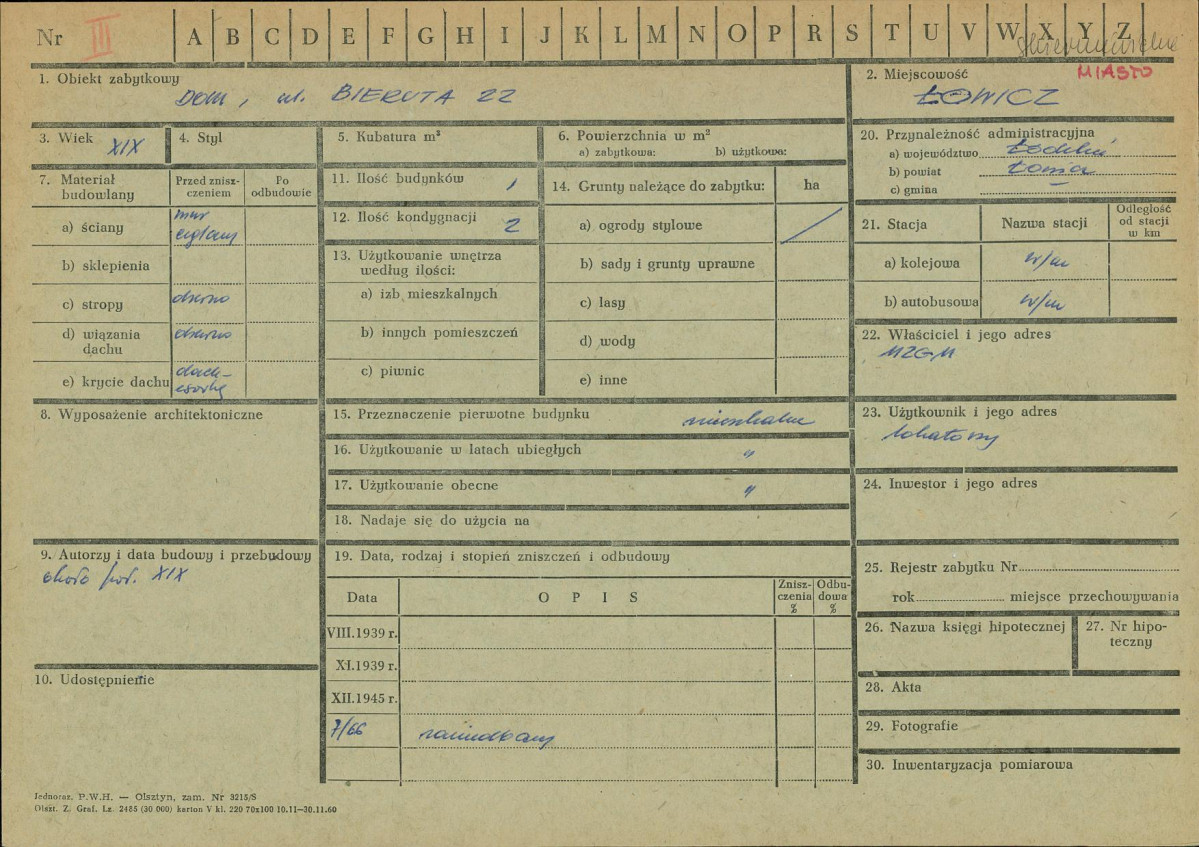 Nr III A B C D E F G H I J K L M N O P R S T U V W X Y Z
skierniewickie
1. Obiekt zabytkowy
DOM, ul. BIERUTA 22
2. Miejscowość MIASTO
ŁOWICZ
3. Wiek XIX
4. Styl
5. Kubatura m³
6. Powierzchnia w m²
a) zabytkowa: b) użytkowa:
20. Przynależność administracyjna
a) województwo
b) powiat
c) gmina —
7. Materiał budowlany
Przed zniszczeniem
Po odbudowie
a) ściany mur ceglany
b) sklepienia
c) stropy drewno
d) wiązania dachu drewno
e) krycie dachu
11. Ilość budynków 1
12. Ilość kondygnacji 2
13. Użytkowanie wnętrza
według ilości:
a) izb mieszkalnych
b) innych pomieszczeń
c) piwnic
14. Grunty należące do zabytku: ha
a) ogrody stylowe /
b) sady i grunty uprawne
c) lasy
d) wody
e) inne
21. Stacja Nazwa stacji
Odległość
od stacji
w km
a) kolejowa w/m
b) autobusowa w/m
22. Właściciel i jego adres
MZGM
8. Wyposażenie architektoniczne
15. Przeznaczenie pierwotne budynku mieszkalne
16. Użytkowanie w latach ubiegłych "
17. Użytkowanie obecne "
18. Nadaje się do użycia na
23. Użytkownik i jego adres
lokatorzy
24. Inwestor i jego adres
9. Autorzy i data budowy i przebudowy
około poł. XIX
10. Udostępnienie
19. Data, rodzaj i stopień zniszczeń i odbudowy
Data
OPIS
Zniszczenia %
Odbudowa %
VIII.1939 r.
XI.1939 r.
XII.1945 r.
7/66 zaniedbany
25. Rejestr zabytku Nr
rok miejsce przechowywania
26. Nazwa księgi hipotecznej
27. Nr hipoteczny
28. Akta
29. Fotografie
30. Inwentaryzacja pomiarowa
Jednoraz. P.W.H. — Olsztyn, zam. Nr 3215/S
Olszt. Z. Graf. Lz. 2485 (30 000) karton V kl. 220 70x100 10.11—30.11.60